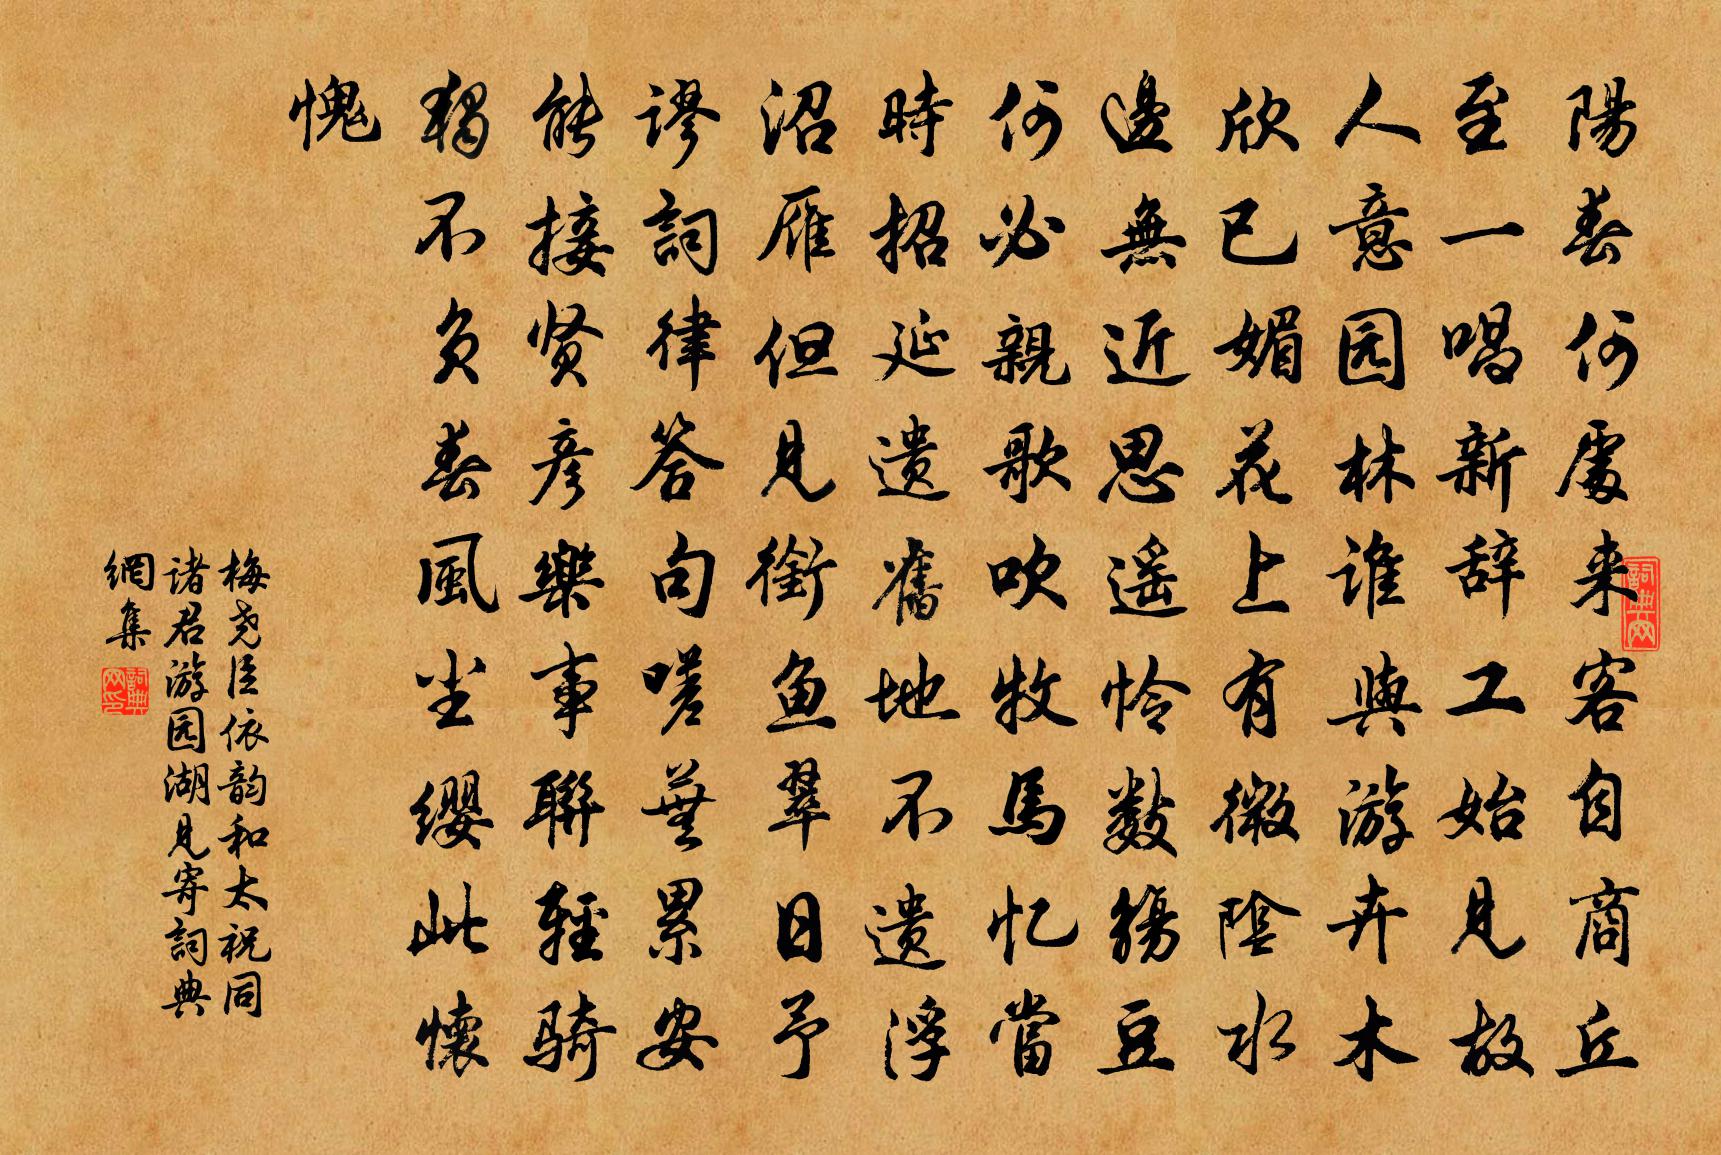 陽春何處来客自商丘
至一唱新辞工始見故
人意园林谁與游卉木
欣已媚花上有微陰水
邊無近思遥怜数觴豆
何必親歌吹牧馬忆當
時招延遗舊地不遗浮
沼雁但見銜鱼翠日予
謬詞律答句嗟蕪累安
能接贤彦樂事聯輕骑
獨不负春風尘纓此懷
愧
梅尧臣依韵和太祝同
諸君游园湖見寄詞典
網集
詞典网
詞典网印